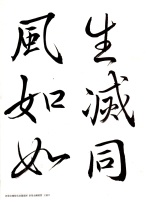 生滅同
風如如